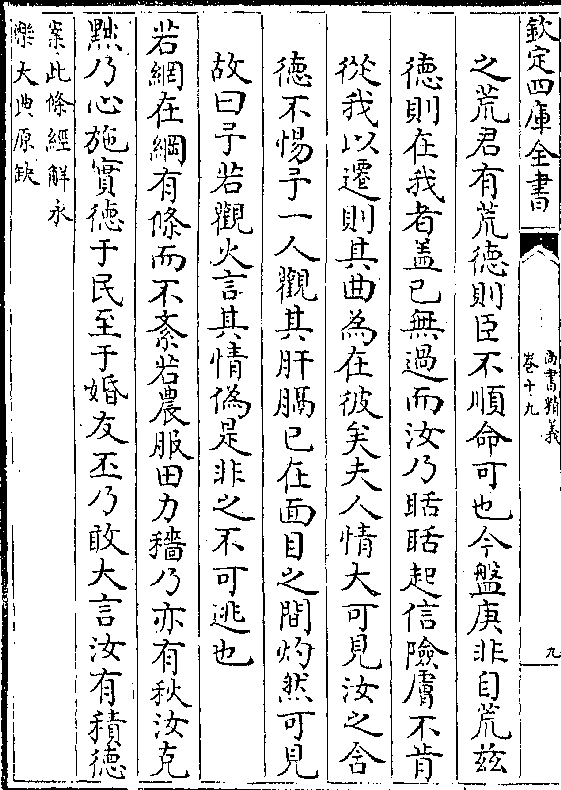 欽定四庫全書
尚書精義
卷十九
九
之荒君有荒德則臣不順命可也今盤庚非自荒兹
德則在我者盖已無過而汝乃聒聒起信險膚不肯
從我以遷則其曲為在彼矣夫人情大可見汝之舍
德不惕予一人觀其肝膈已在面目之間灼然可見
故曰予若觀火言其情偽是非之不可逃也
若網在綱有條而不紊若農服田力穡乃亦有秋汝克
黜乃心施實德于民至于婚友丕乃敢大言汝有積德
案此條經解永
樂大典原缺